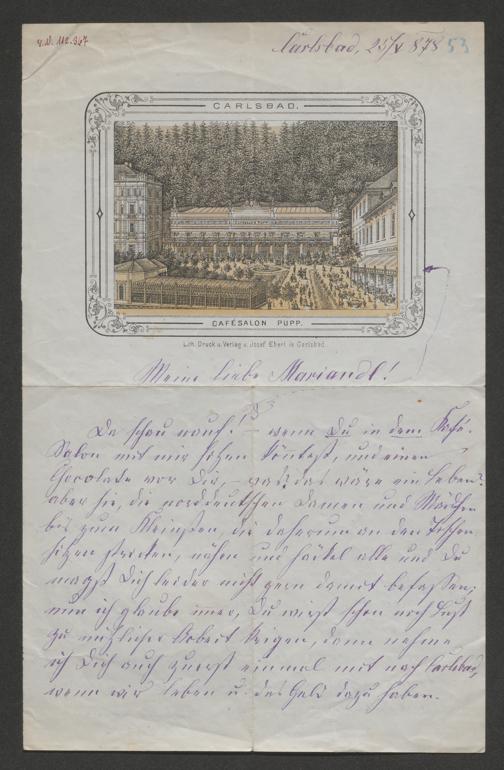 I.N. 112.347
Carlsbad, 25/V 878 53
CARLSBAD.
CAFÉSALON PUPP.
Lith. Druck u. Verlag v. Josef Eberl in Carlsbad.
Meine liebe Mariandl!
Da schau nauf! – wenn Du in dem Kafé-
Salon mit mir sitzen könntest, und einen
Chocolate vor Dir, – das wäre ein Leben!
aber hier, die norddeutschen Damen und Mädchen
bis zum Kleinsten, die daherum an den Tischen
sitzen stricken, nähen und häckel alle und Du
magst Dich leider nicht gern damit befassen;
nun ich glaube immer, Du wirst schon noch Lust
zu nützlicher Arbeit kriegen, dann nehme
ich Dich auch zuerst einmal mit nach Carlsbad,
wenn wir leben u. das Geld dazu haben.